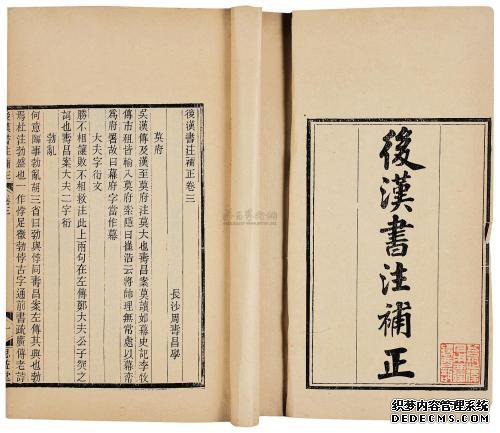 後漢書注補正
後漢書注補正卷三
長沙周壽昌學
莫府
吳漢傳及漢至莫府注莫大也壽昌案莫讀如幕史記李牧
傳市租皆輸入莫府索隱曰崔浩云將帥理無常處以幕帟
為府署故曰幕府字當作幕
大夫字衍文
勝不相讓敗不相救注此上兩句在左傳鄭大夫公子突之
詞也壽昌案大夫二字衍
勃亂
何意臨事勃亂胡三省曰勃與悖同壽昌案左傳其興也勃
焉杜注勃盛也一作悖足徵勃悖古字通前書疏廣傳老誖
後漢書注補正 卷三 一 思益堂
织梦内容管理系统
DEDECMS.COM